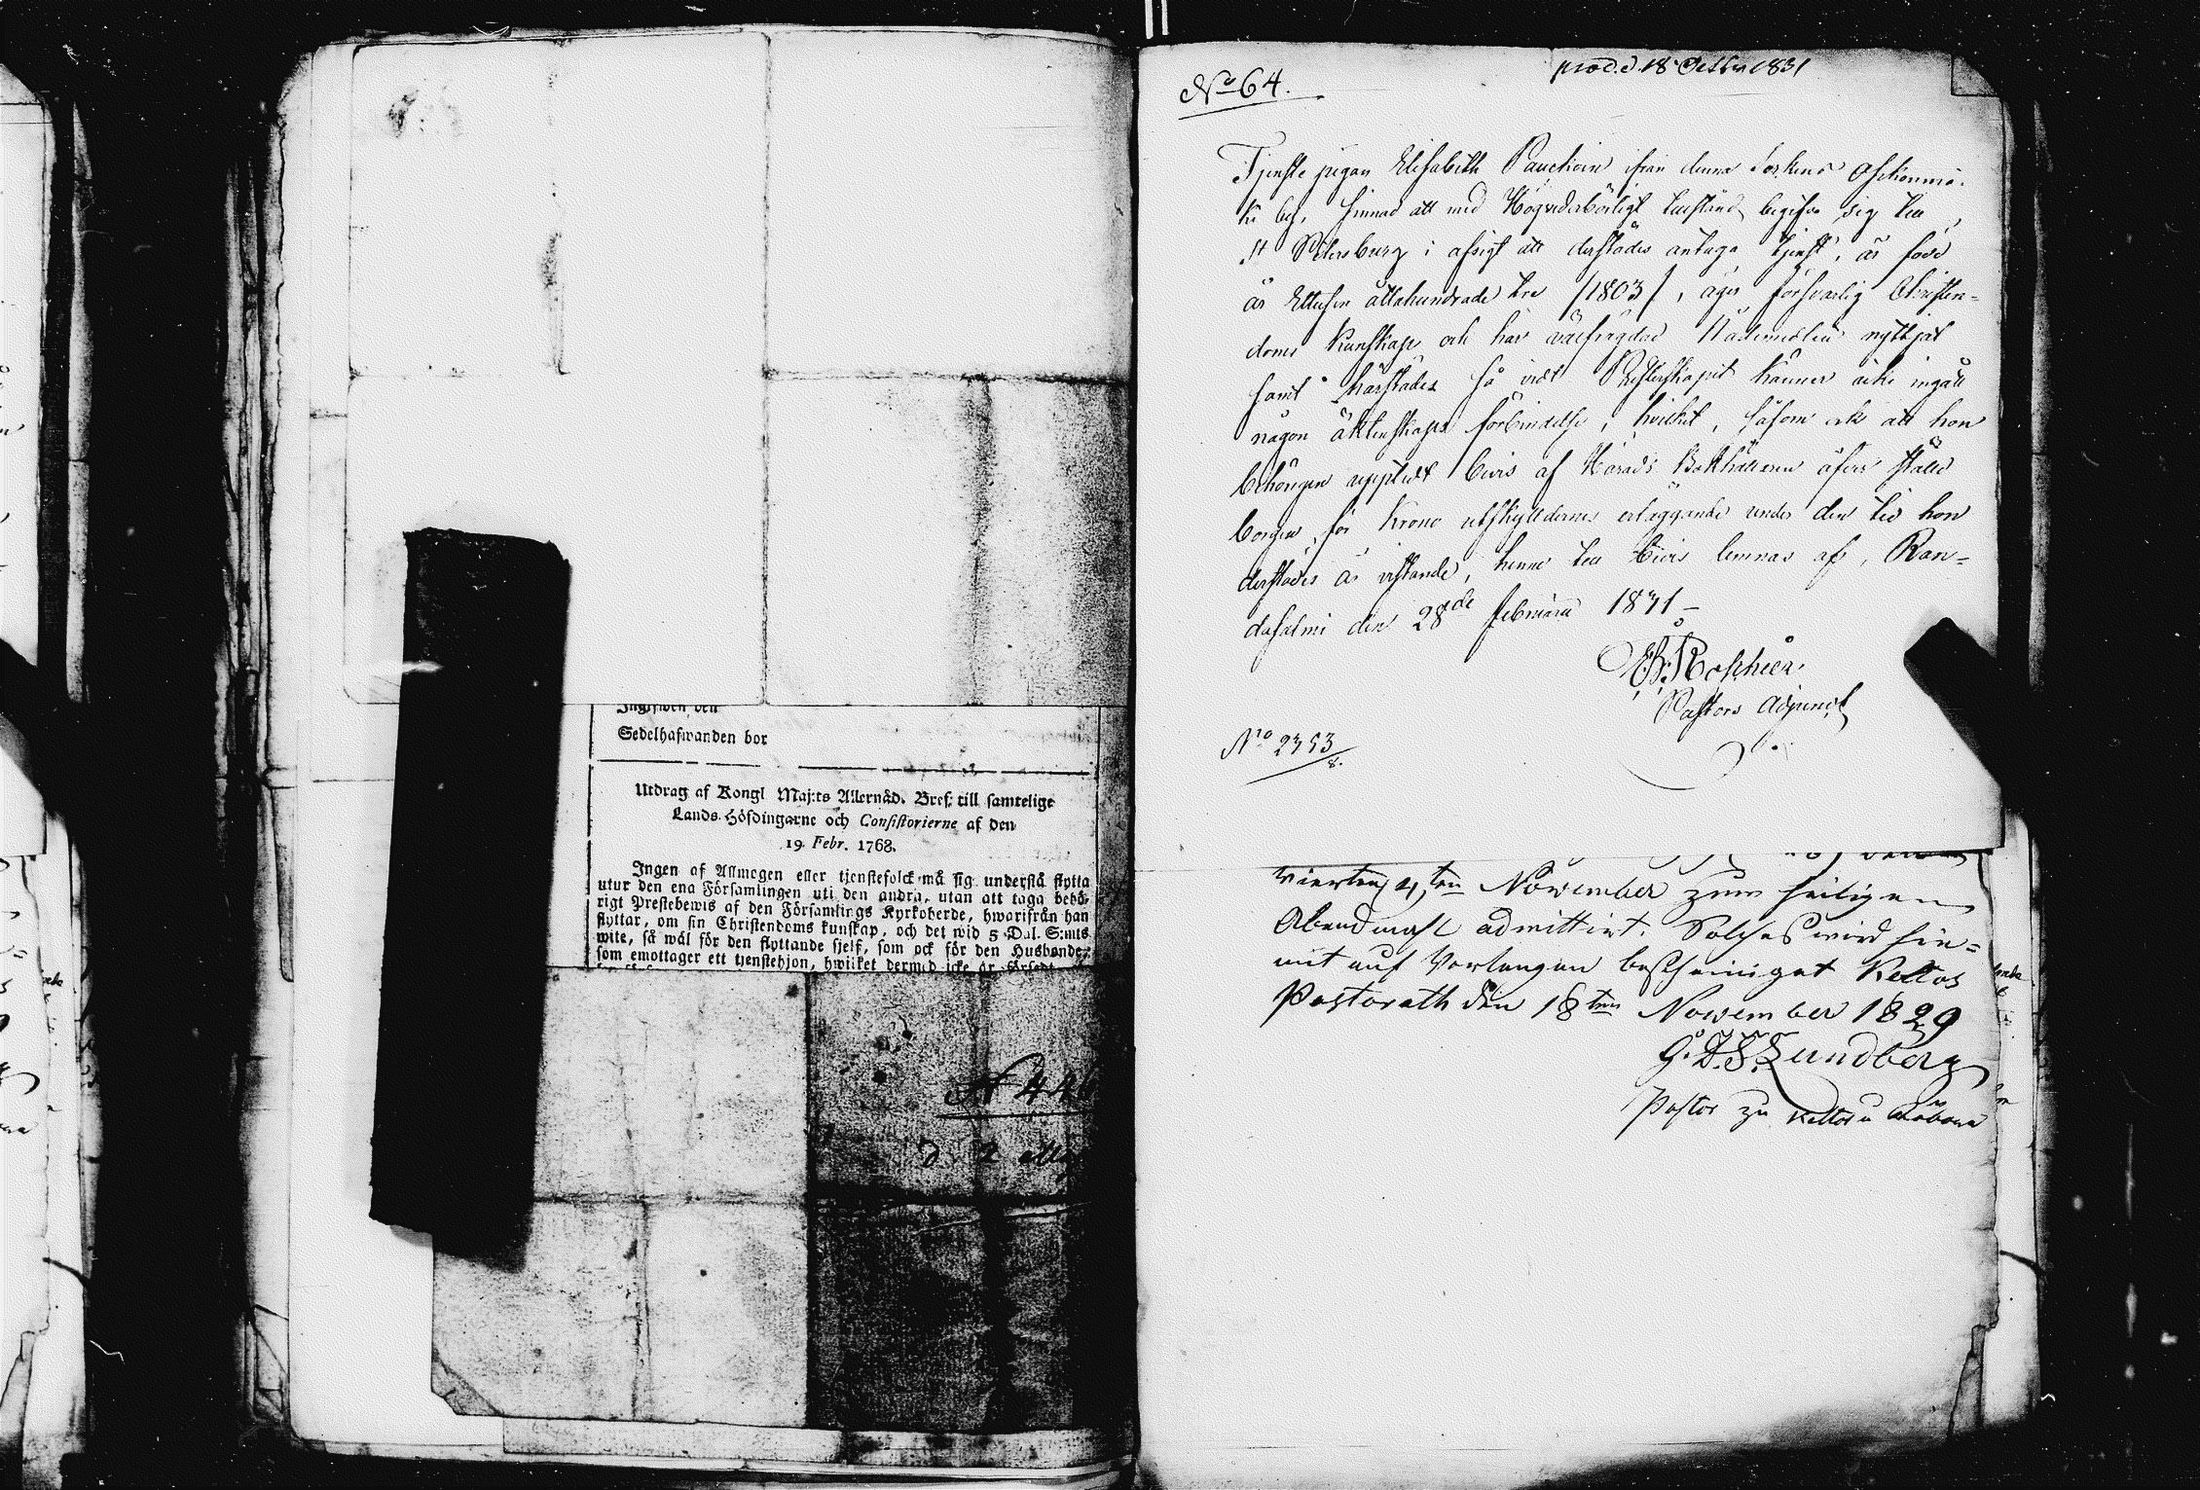 Sedelhafwanden bor
Utdrag af Kongl Maj:ts Allernåd. Bref: till samtelige
Lands-Höfdingarne och Consistorierne af den
19. Febr. 1768.
Ingen af Allmogen eller tjenstefolck må sig understå flytta
utur den ena Församlingen uti den andra, utan att taga behö-
rigt Prestebewis af den Församlings Kyrkoherde, hwarifrån han
flyttar, om sin Christendoms kunskap, och det wid 5 Dal. S:mts
wite, så wäl för den flyttande sjelf, som ock för den Husbonde,
som emottager ett tjenstehjon, hwilket dermed icke är försedt
N 446
d. 2
No 64.
prod. d 18 Octbr 1831
Tjenste pigan Elisabeth Pauchoin ifrån denna Sockens
ki by, sinnad att med Högvederbörligt tillstånd begifva sig till
St Petersburg i afsigt att derstädes antaga tjenst, är född
år Ettusen åttahundrade tre /1803/, äger försvarlig Christen-
doms kunskap och har välfrägdad Nådemedlen nyttjat
samt härstädes så vidt Presterskapet känner icke ingått
någon äktenskaps förbindelse, hvilket, såsom ock att hon
behörigen upptedt bevis af Härads Bokhållaren öfver ställd
borgen för Krono utskyldernes erläggande under den tid hon
derstädes är vistande, henne till bevis lemnas af, Ran-
dasalmi den 28de Februarii 1831 –
Pastors Adjunct
No 2353
8.
November zum heiligen
Abendmahl admittirt. Solches wird hie-
mit auf Verlangen bescheiniget Keltos
Pastorath den 18ten November 1829
G. F. S. Lundberg
Pastor zu Keltos u